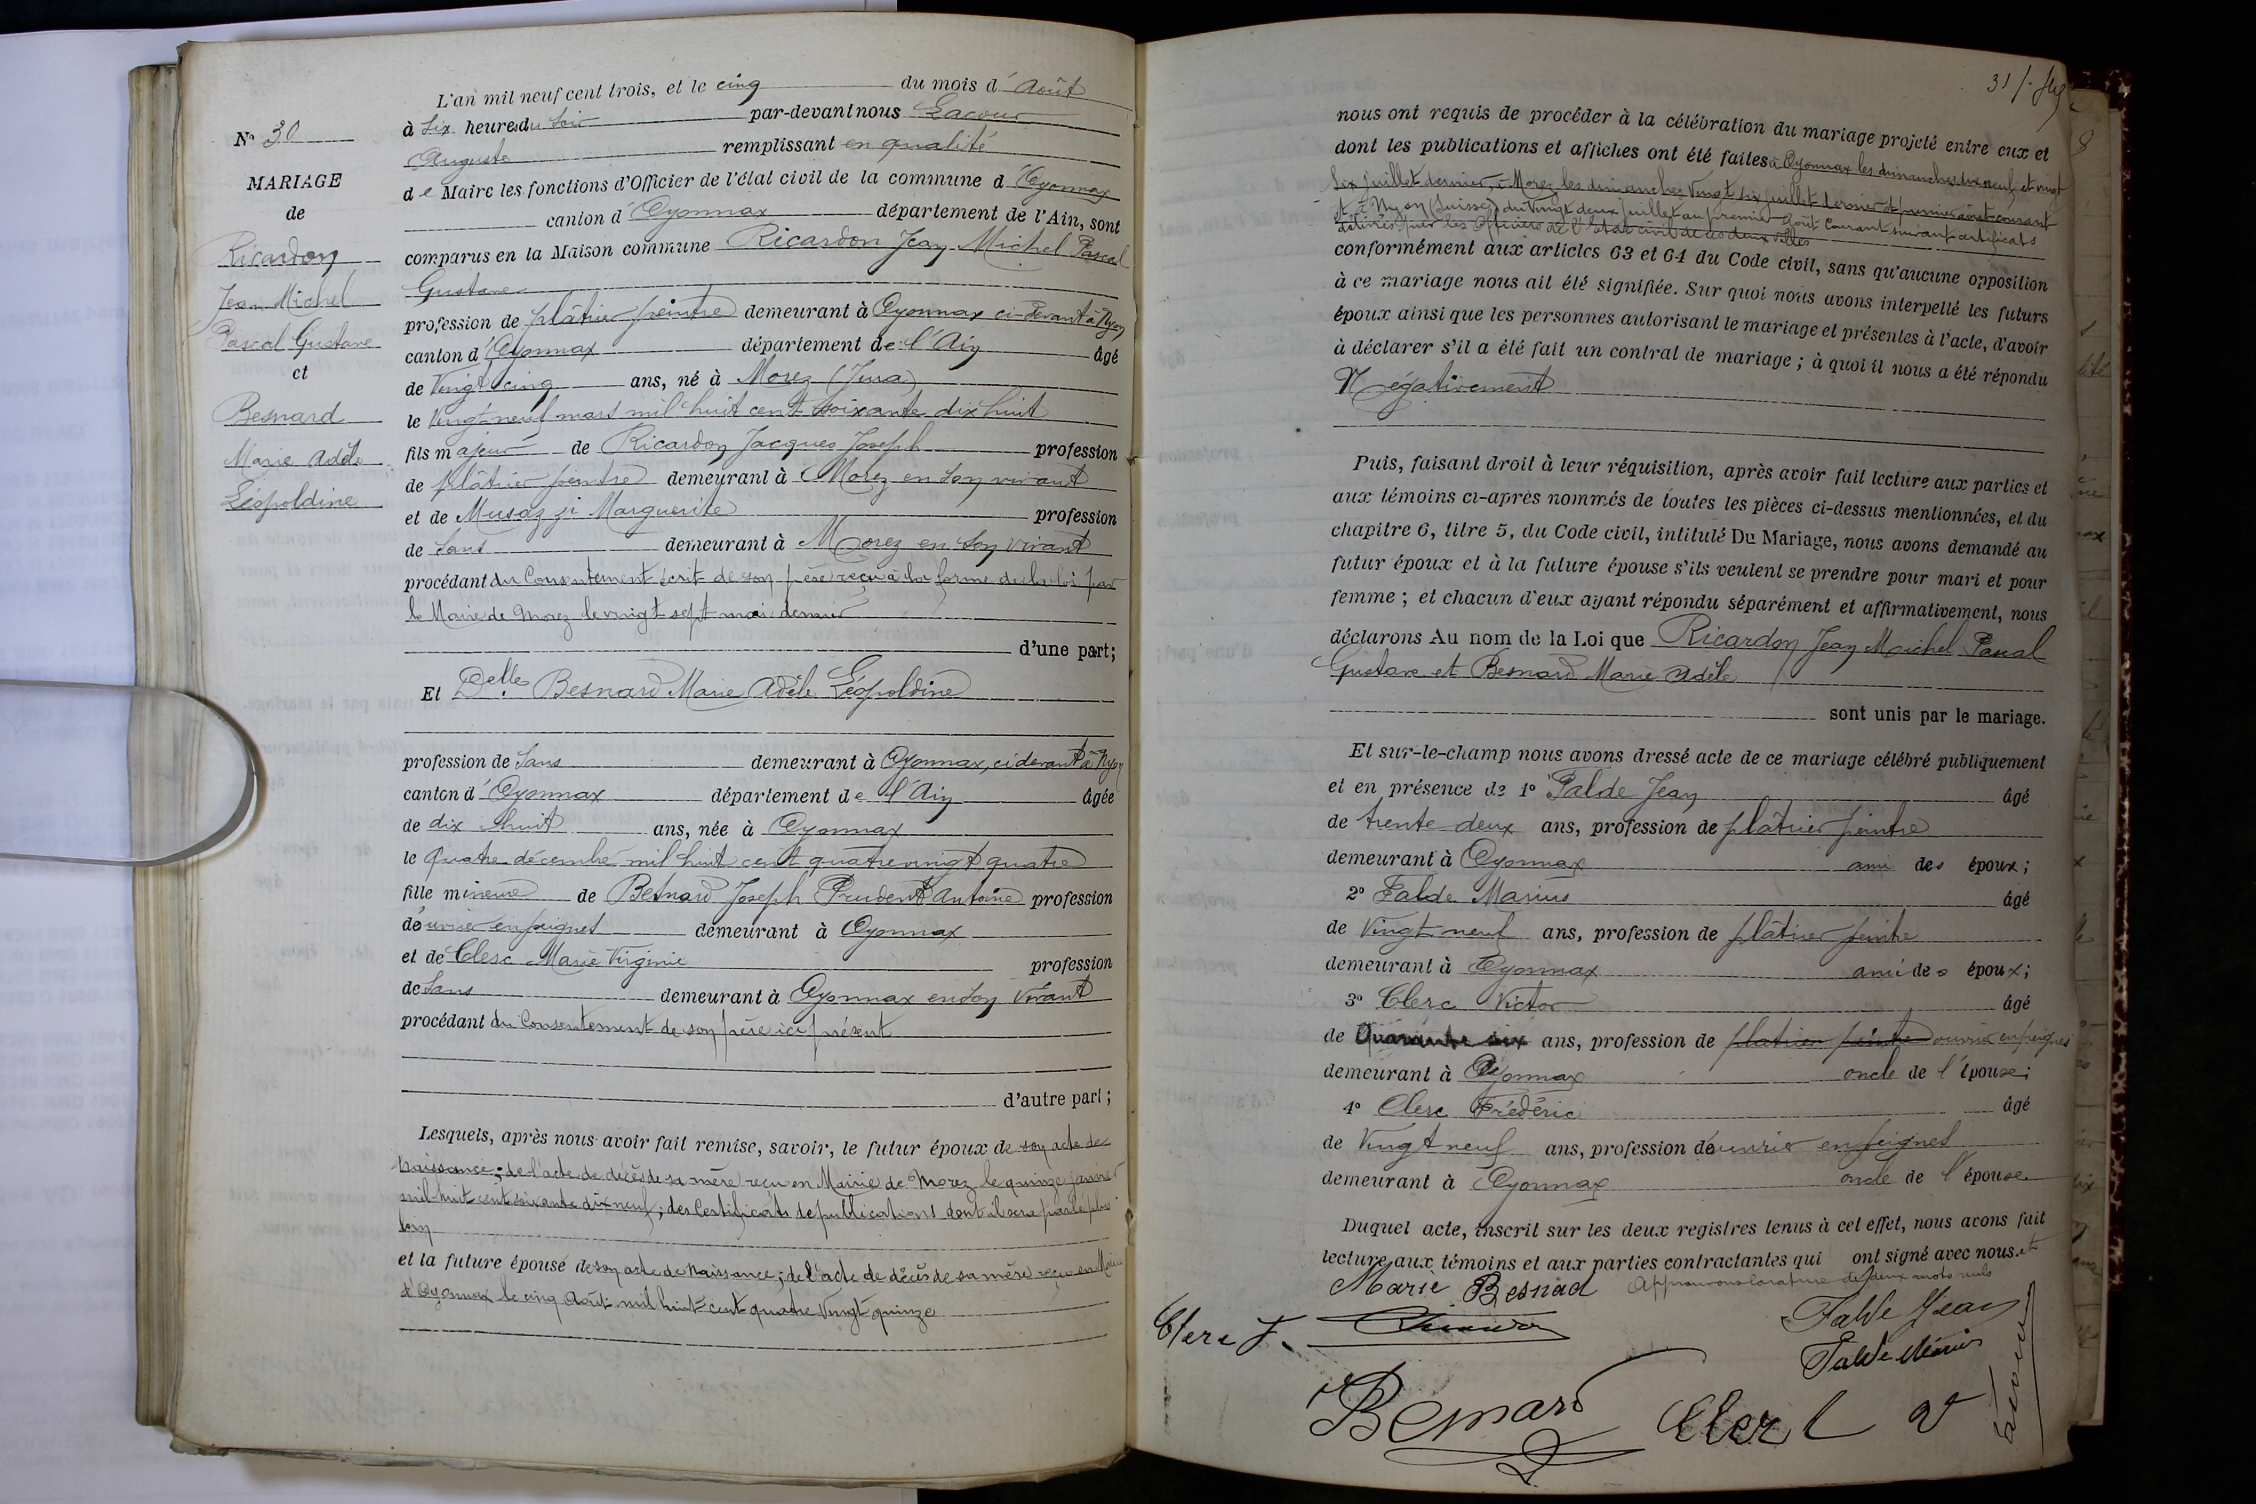 L'an mil neuf cent trois, et le cinq du mois d'Août
N° 30
à six heures du soir par-devant nous Lacour
Auguste remplissant en qualité
MARIAGE
de Maire les fonctions d'Officier de l'état civil de la commune d'Oyonnax
de
canton d'Oyonnax département de l'Ain, sont
Ricardon
comparus en la Maison commune Ricardon Jean Michel Pascal
Jean Michel
Gustave
Pascal Gustave
profession de plâtrier peintre demeurant à Oyonnax ci-devant à Nyon
et
canton d'Oyonnax département de l'Ain âgé
de Vingt cinq ans, né à Morez (Jura)
Besnard
le Vingt neuf mars mil huit cent soixante dix huit
Marie Adèle
fils majeur de Ricardon Jacques Joseph profession
Léopoldine
de plâtrier peintre demeurant à Morez en son vivant
et de Marguerite profession
de Sans demeurant à Morez en son vivant
procédant du Consentement écrit de son père reçu à la forme de la loi par
le Maire de Morez le vingt sept mai dernier
d'une part;
Et Delle Besnard Marie Adèle Léopoldine
profession de Sans demeurant à Oyonnax, ci devant à Nyon
canton d'Oyonnax département de l'Ain âgée
de dix huit ans, née à Oyonnax
le Quatre décembre mil huit cent quatre vingt quatre
fille mineure de Besnard Joseph Prudent Antoine profession
d'ouvrier en peignes demeurant à Oyonnax
et de Clerc Marie Virginie profession
de Sans demeurant à Oyonnax en son vivant
procédant du Consentement de son père ici présent
d'autre part;
Lesquels, après nous avoir fait remise, savoir, le futur époux de son acte de
Naissance; de l'acte de décès de sa mère reçu en Mairie de Morez le quinze janvier
mil huit cent soixante dix neuf; des Certificats de publications dont il sera parlé plus
loin
et la future épouse de son acte de Naissance; de l'acte de décès de sa mère reçu en Mairie
d'Oyonnax le cinq Août mil huit cent quatre Vingt quinze
31
nous ont requis de procéder à la célébration du mariage projeté entre eux et
dont les publications et affiches ont été faites à Oyonnax les dimanches dix neuf et vingt
six juillet dernier, à Morez les dimanches Vingt six juillet dernier et premier août courant
et à Nyon (Suisse) du vingt deux juillet au premier Août Courant suivant certificats
délivrés par les Officiers de l'Etat civil de ces deux villes
conformément aux articles 63 et 64 du Code civil, sans qu'aucune opposition
à ce mariage nous ait été signifiée. Sur quoi nous avons interpellé les futurs
époux ainsi que les personnes autorisant le mariage et présentes à l'acte, d'avoir
à déclarer s'il a été fait un contrat de mariage; à quoi il nous a été répondu
Négativement
Puis, faisant droit à leur réquisition, après avoir fait lecture aux parties et
aux témoins ci-après nommés de toutes les pièces ci-dessus mentionnées, et du
chapitre 6, titre 5, du Code civil, intitulé Du Mariage, nous avons demandé au
futur époux et à la future épouse s'ils veulent se prendre pour mari et pour
femme; et chacun d'eux ayant répondu séparément et affirmativement, nous
déclarons Au nom de la Loi que Ricardon Jean Michel Pascal
Gustave et Besnard Marie Adèle
sont unis par le mariage.
Et sur-le-champ nous avons dressé acte de ce mariage célébré publiquement
et en présence de 1° Falde Jean âgé
de trente deux ans, profession de plâtrier peintre
demeurant à Oyonnax ami des époux;
2° Falde Marius âgé
de Vingt neuf ans, profession de plâtrier peintre
demeurant à Oyonnax ami des époux;
3° Clerc Victor âgé
de Quarante six ans, profession de platrier peintre ouvrier en peignes
demeurant à Oyonnax oncle de l'épouse;
4° Clerc Frédéric âgé
de Vingt neuf ans, profession d'ouvrier en peignes
demeurant à Oyonnax oncle de l'épouse
Duquel acte, inscrit sur les deux registres tenus à cet effet, nous avons fait
lecture aux témoins et aux parties contractantes qui ont signé avec nous. et
Approuvons la rature de deux mots nuls
Marie Besnad
Falde Jean
Clerc F.
Falde Marius
Besnard
Clerc V
Lacour